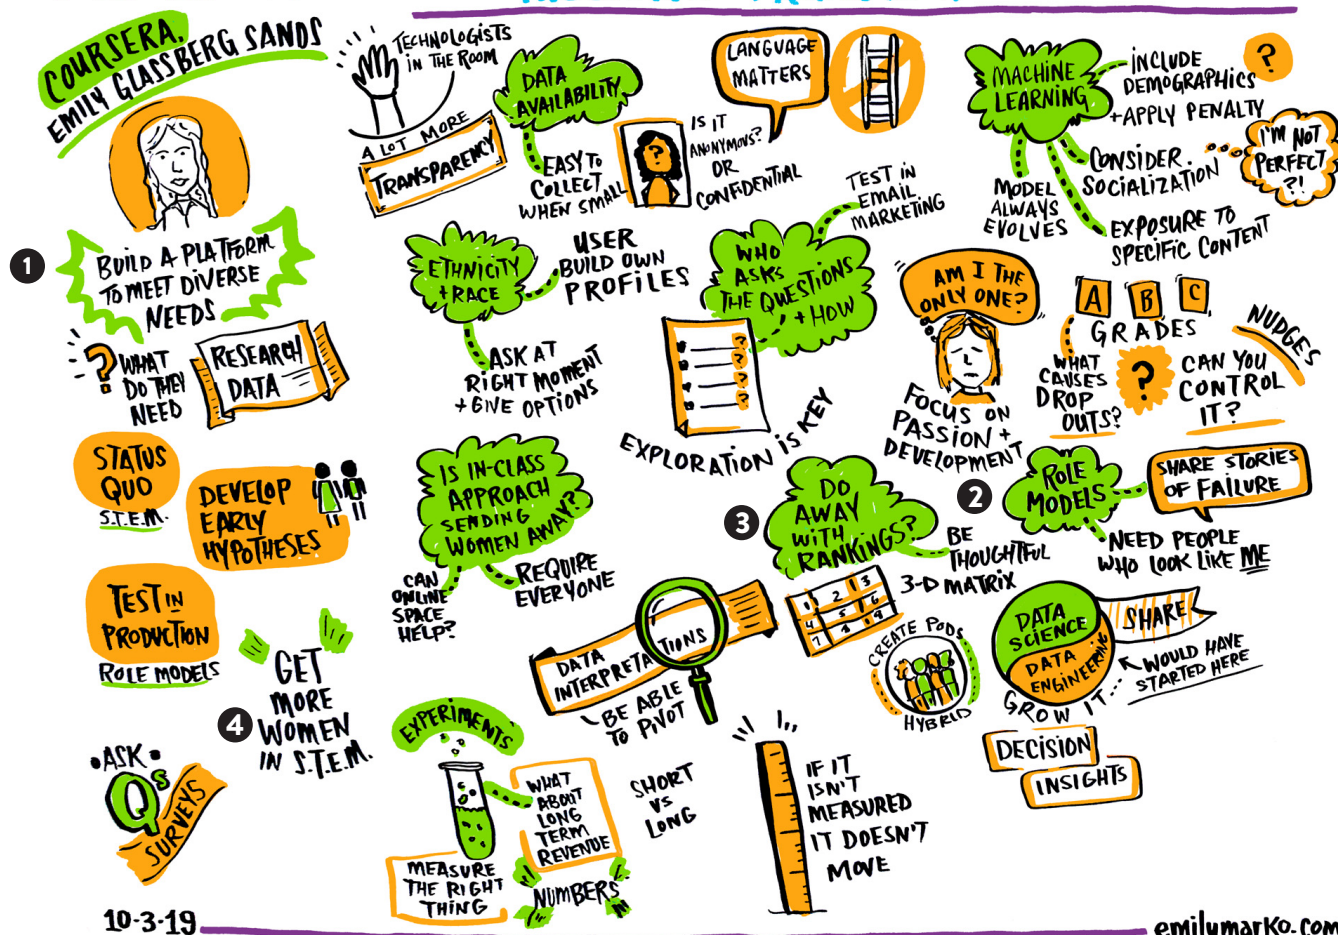 COURSERA,
EMILY GLASSBERG SANDS
1
BUILD A PLATFORM
TO MEET DIVERSE
NEEDS
?
WHAT
DO THEY
NEED
RESEARCH
DATA
STATUS
QUO
S.T.E.M.
DEVELOP
EARLY
HYPOTHESES
TEST IN
PRODUCTION
ROLE MODELS
4
GET
MORE
WOMEN
IN S.T.E.M.
• ASK •
Qs
SURVEYS
10-3-19
TECHNOLOGISTS
IN THE ROOM
A LOT MORE
TRANSPARENCY
DATA
AVAILABILITY
EASY TO
COLLECT
WHEN SMALL
?
IS IT
ANONYMOUS?
OR
CONFIDENTIAL
LANGUAGE
MATTERS
ETHNICITY
+ RACE
USER
BUILD OWN
PROFILES
ASK AT
RIGHT MOMENT
+ GIVE OPTIONS
WHO
ASKS
THE QUESTIONS
+ HOW
TEST IN
EMAIL
MARKETING
?
?
?
?
EXPLORATION IS KEY
IS IN-CLASS
APPROACH
SENDING
WOMEN AWAY?
CAN
ONLINE
SPACE
HELP?
REQUIRE
EVERYONE
DATA
INTERPRETATIONS
BE ABLE
TO PIVOT
EXPERIMENTS
WHAT
ABOUT
LONG
TERM
REVENUE
MEASURE
THE RIGHT
THING
NUMBERS
SHORT
VS
LONG
IF IT
ISN'T
MEASURED
IT DOESN'T
MOVE
MACHINE
LEARNING
INCLUDE
DEMOGRAPHICS
+ APPLY PENALTY
?
CONSIDER
SOCIALIZATION
I'M NOT
PERFECT
?!
MODEL
ALWAYS
EVOLVES
EXPOSURE TO
SPECIFIC CONTENT
AM I THE
ONLY ONE?
FOCUS ON
PASSION +
DEVELOPMENT
A B C
GRADES
WHAT
CAUSES
DROP
OUTS?
?
CAN YOU
CONTROL
IT?
NUDGES
2
ROLE
MODELS
SHARE STORIES
OF FAILURE
NEED PEOPLE
WHO LOOK LIKE ME
3
DO
AWAY
WITH
RANKINGS?
BE
THOUGHTFUL
3-D MATRIX
1 2 3
4 5 6
7 8 9
CREATE PODS
HYBRID
DATA
SCIENCE
DATA
ENGINEERING
SHARE
WOULD HAVE
STARTED HERE
GROW IT...
DECISION
INSIGHTS
emilymarko.com